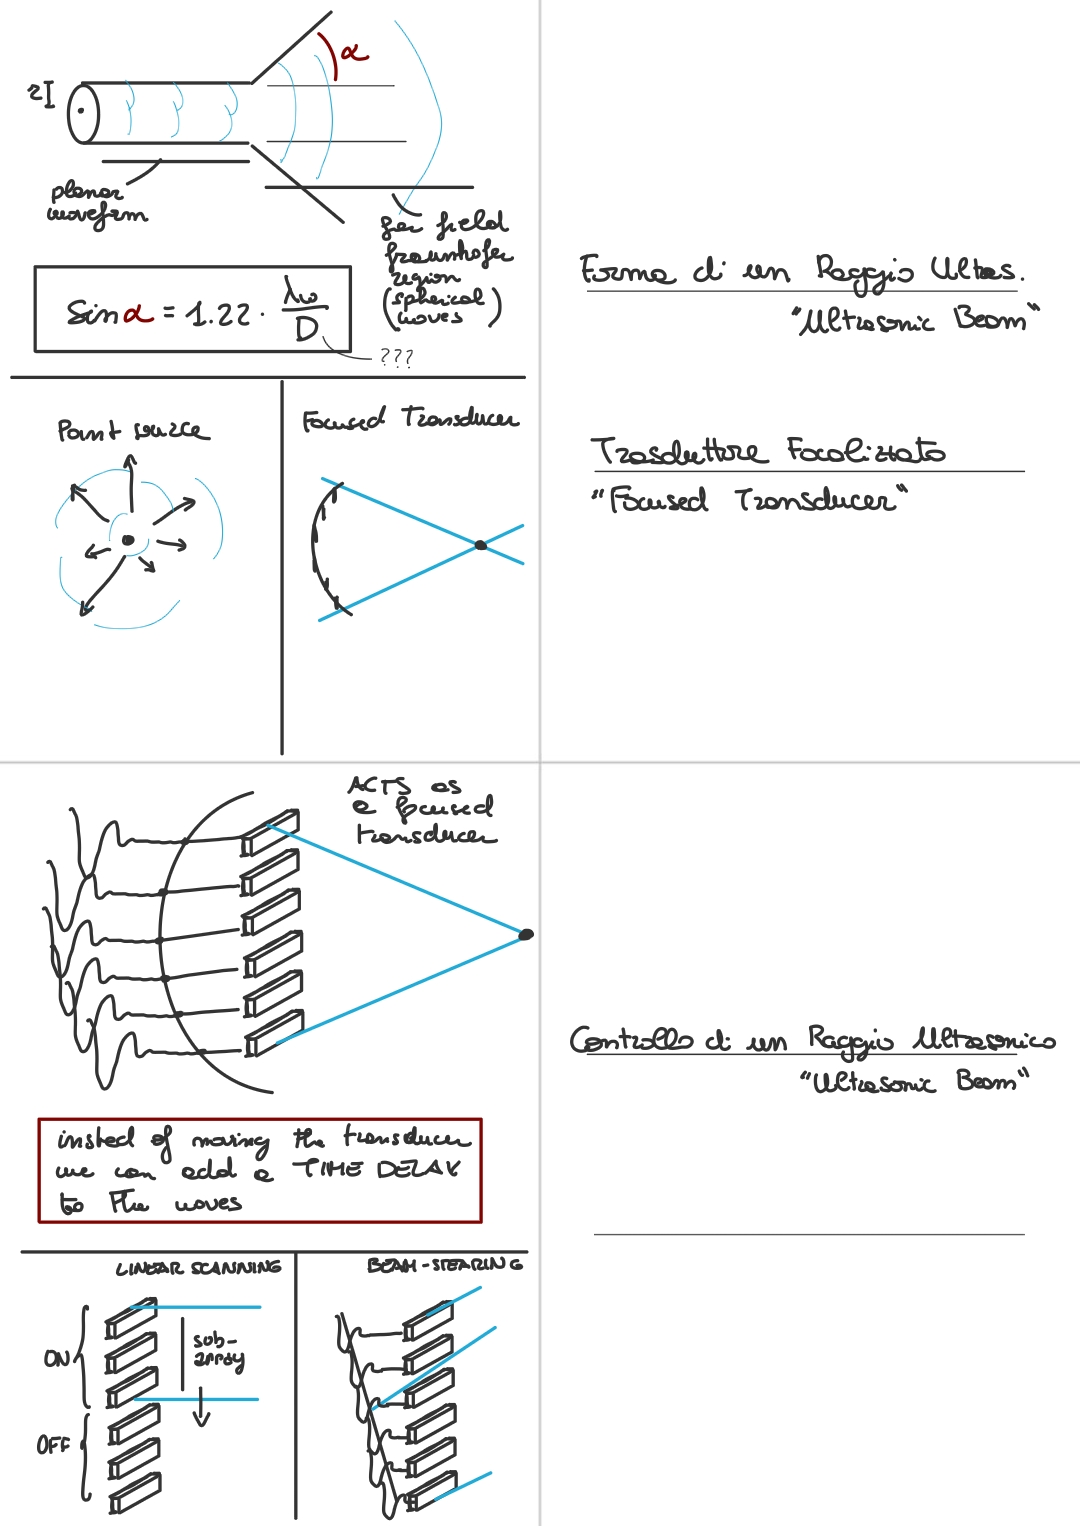 α
planar
waveform
far field
fraunhofer
region
(spherical
waves)
Sin α = 1.22 · λω / D
???
Forma di un Raggio Ultras.
"Ultrasonic Beam"
Point source
Focused Transducer
Trasduttore Focalizzato
"Focused Transducer"
ACTS as
a focused
transducer
insted of moving the transducer
we can add a TIME DELAY
to the waves
Controllo di un Raggio Ultrasonico
"Ultrasonic Beam"
LINEAR SCANNING
ON
OFF
sub-
array
BEAM-STEARING